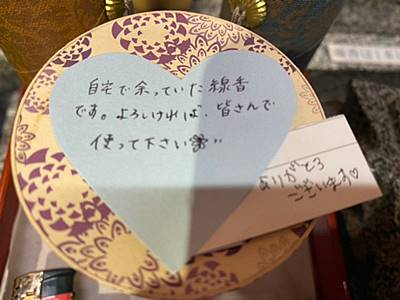 自宅で余っていた線香
です。よろしければ、皆さんで
使って下さい
ありがとう
ございます♡